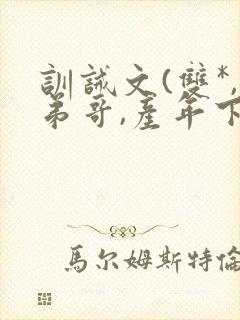 訓誡文(雙*,
弟哥,產年下
馬尔姆斯特倫